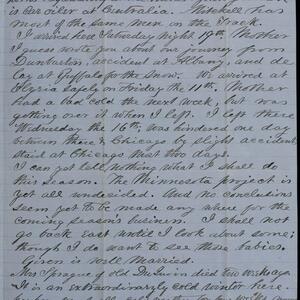 is our orders at Centralia. Mitchell has
most of the same men on the Track.
I arrived here Saturday Night 19th. Mother
I guess wrote you about our journey from
Dunbarton, accident at Albany, and de
lay at Buffalo for the Snow. We arrived at
Elyria safely on Friday the 11th. Mother
had a bad cold the next week, but was
getting over it when I left. I left there
Wednesday the 16th, was hindered one day
between there & Chicago by slight accident,
staid at Chicago that two days.
I can yet tell nothing what I shall do
this season. The Minnesota project is
yet all undecided. And no conclusions
seem yet to be made any where for the
coming season's business. I shall not
go back East until I look about some;
though I do want to see those babies.
Green is well. Married.
Mrs Sprague of old Du Quoin died two weeks ago
It is an extraordinarily cold winter here.